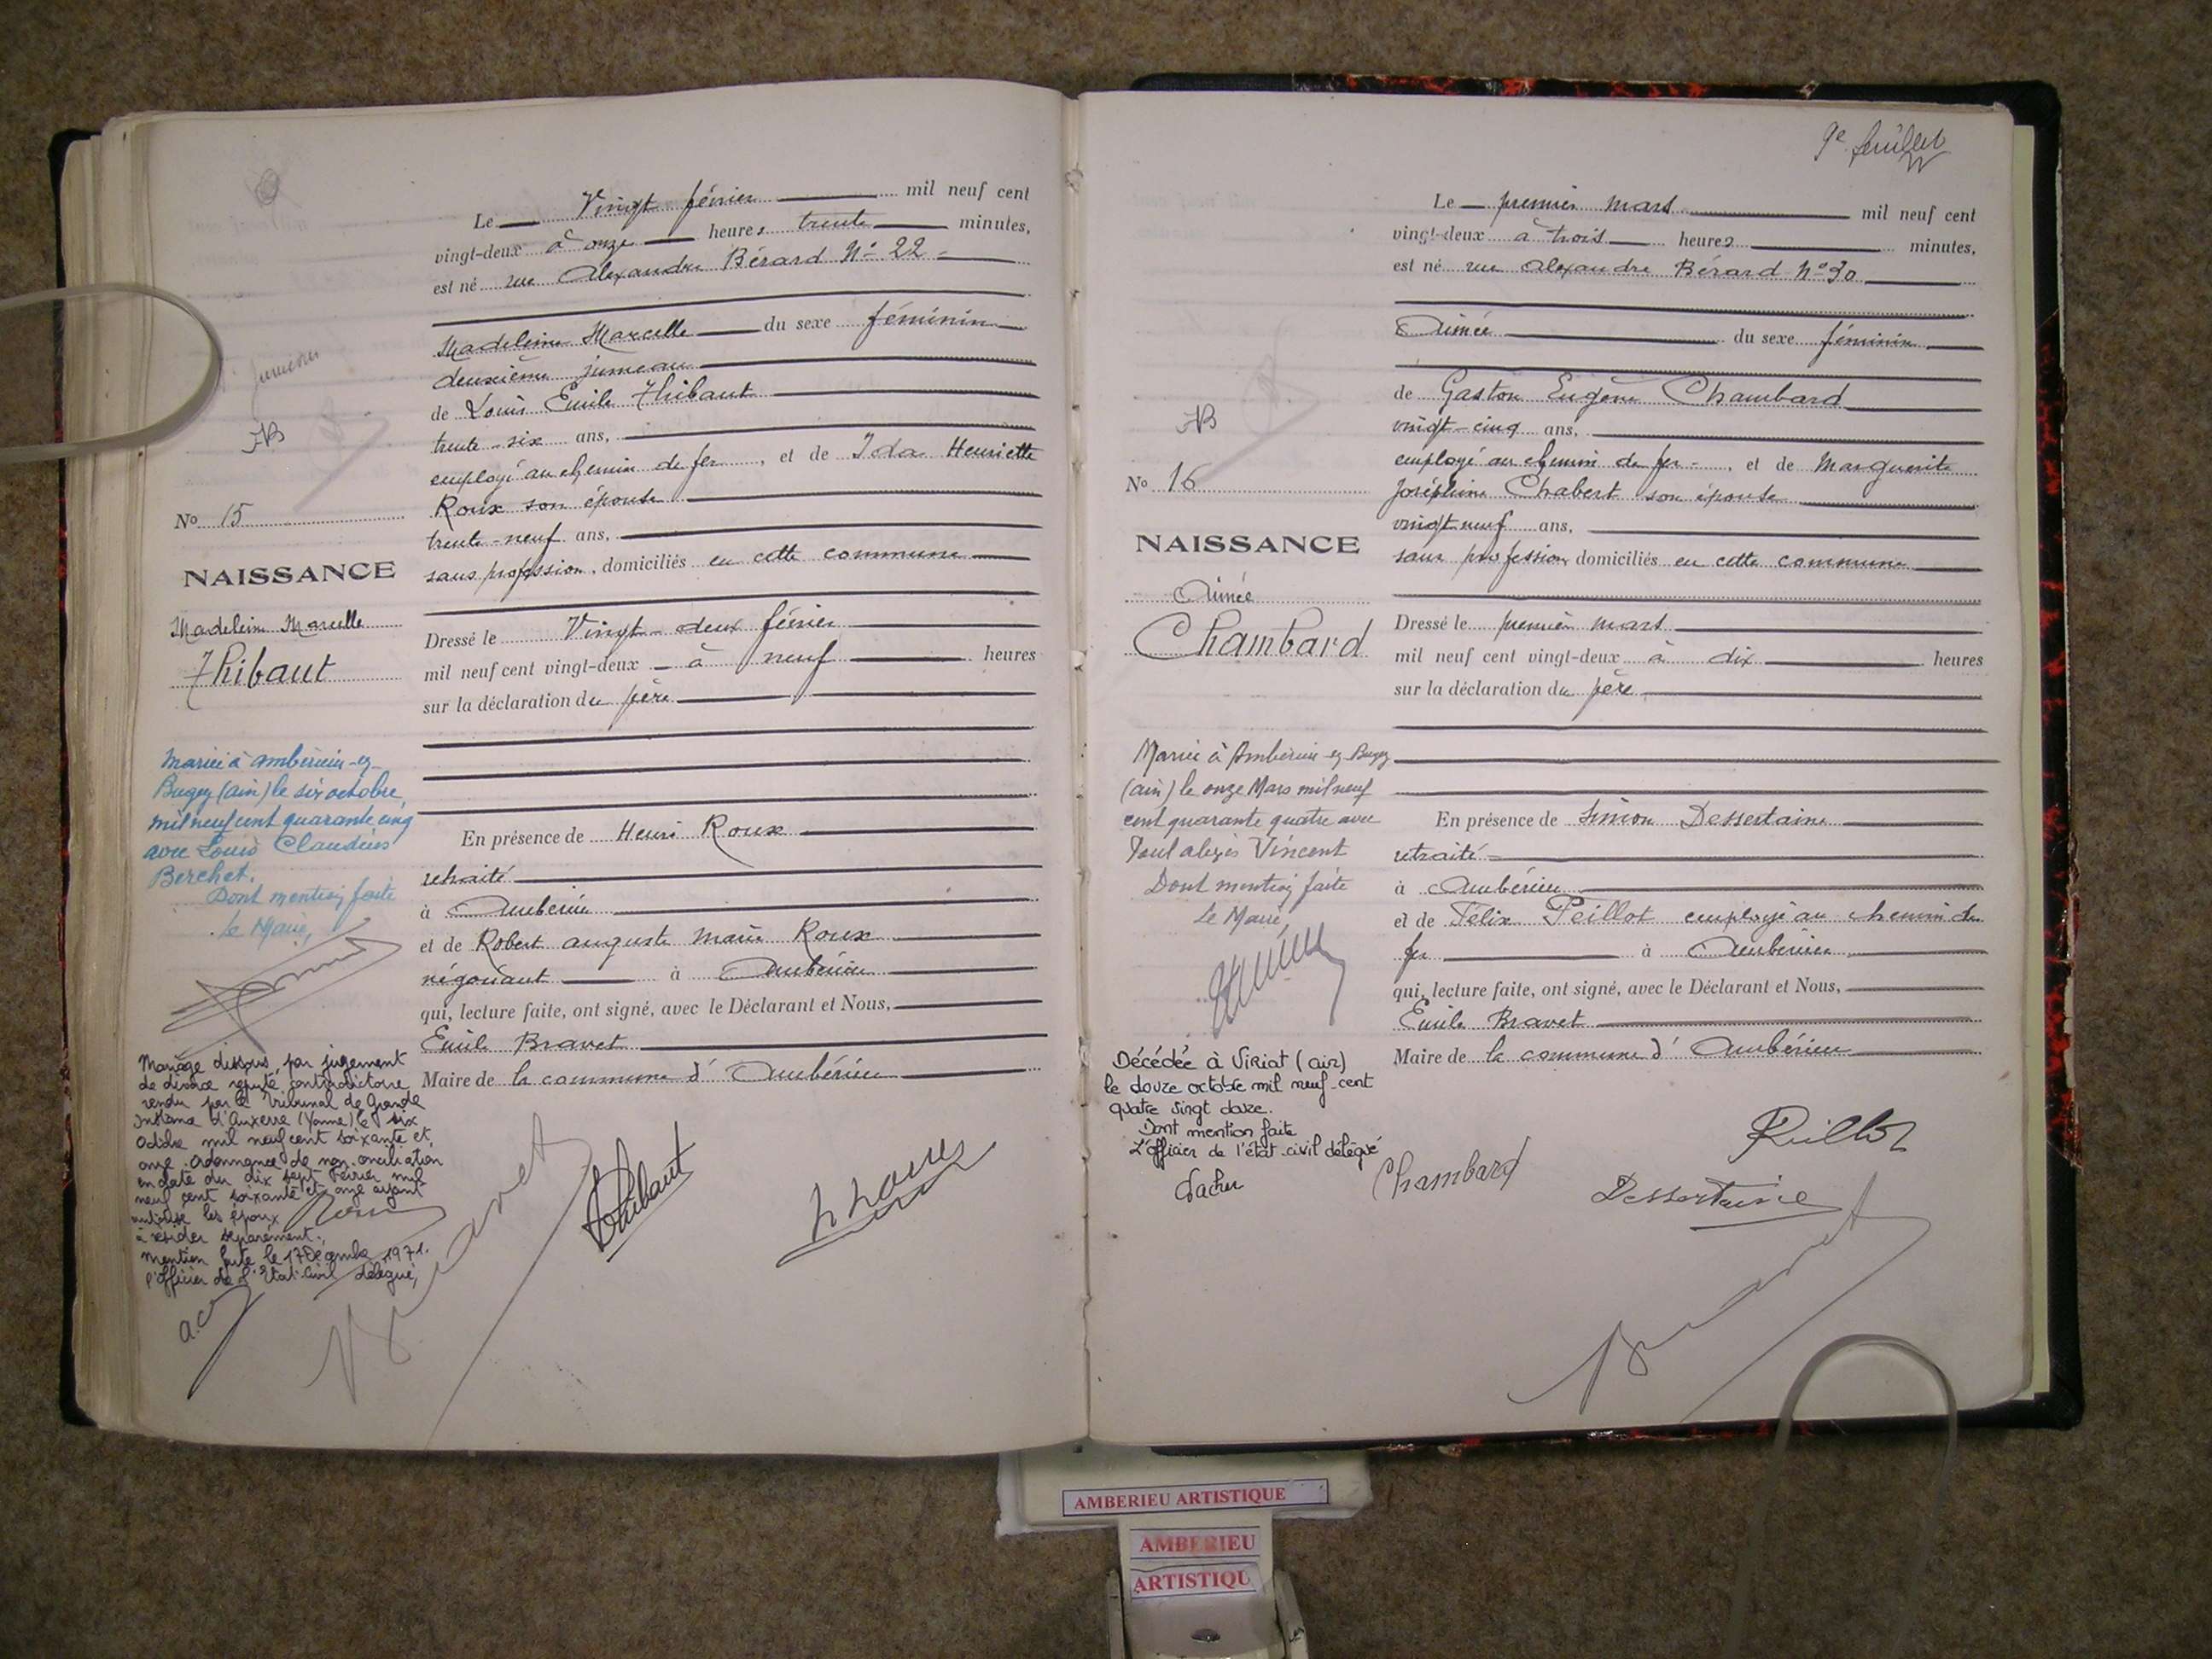 Le Vingt février mil neuf cent
vingt-deux à onze heures trente minutes,
est né rue Alexandre Bérard N° 22
Madeleine Marcelle du sexe féminin
deuxième jumeau
de Louis Emile Thibaut
trente-six ans,
employé au chemin de fer, et de Ida Henriette
Roux son épouse
trente-neuf ans,
sans profession, domiciliés en cette commune
Dressé le Vingt-deux février
mil neuf cent vingt-deux à neuf heures
sur la déclaration du père
En présence de Henri Roux
retraité
à Ambérieu
et de Robert Auguste Marie Roux
négociant à Ambérieu
qui, lecture faite, ont signé, avec le Déclarant et Nous,
Emile Bravet
Maire de la commune d'Ambérieu
Bravet
Thibaut
H Roux
jumeaux
No 15
NAISSANCE
Madeleine Marcelle
Thibaut
Mariée à Ambérieu-en-
Bugey (Ain) le six octobre
mil neuf cent quarante cinq
avec Louis Claudius
Berchet.
Dont mention faite
Le Maire,
Mariage dissous par jugement
de divorce réputé contradictoire
rendu par le Tribunal de Grande
Instance d'Auxerre (Yonne) le six
Octobre mil neuf cent soixante et
onze. Ordonnance de non-conciliation
en date du dix sept Février mil
neuf cent soixante et onze ayant
autorisé les époux
à résider séparément.
Mention faite le 17 Décembre 1971.
l'officier de l'Etat-Civil délégué,
9e feuillet
Le premier mars mil neuf cent
vingt-deux à trois heures minutes,
est né rue Alexandre Bérard N° 30
Aimée du sexe féminin
de Gaston Eugène Chambard
vingt-cinq ans,
employé au chemin de fer, et de Marguerite
Joséphine Chabert son épouse
vingt neuf ans,
sans profession, domiciliés en cette commune
Dressé le premier mars
mil neuf cent vingt-deux à dix heures
sur la déclaration du père
En présence de Simon Dessertaine
retraité
à Ambérieu
et de Félix Peillot employé au chemin de
fer à Ambérieu
qui, lecture faite, ont signé, avec le Déclarant et Nous,
Emile Bravet
Maire de la commune d'Ambérieu
Peillot
Chambard
Dessertaine
Bravet
No 16
NAISSANCE
Aimée
Chambard
Mariée à Ambérieu-en-Bugey
(Ain) le onze Mars mil neuf
cent quarante quatre avec
Paul Alexis Vincent
Dont mention faite
Le Maire,
Décédée à Viriat (Ain)
le douze octobre mil neuf-cent
quatre vingt douze.
Dont mention faite
L'officier de l'état-civil délégué
AMBERIEU ARTISTIQUE
AMBERIEU
ARTISTIQU